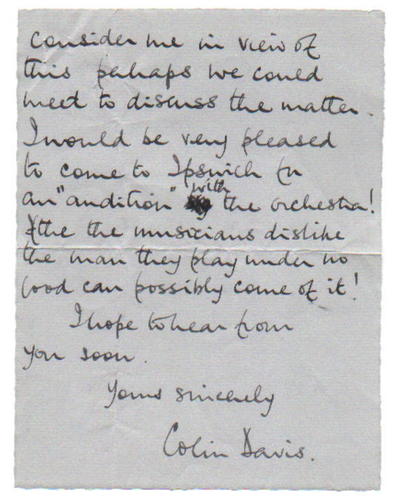 consider me in view of
this perhaps we could
meet to discuss the matter.
I would be very pleased
to come to Ipswich for
an "audition" with the orchestra!
If the the musicians dislike
the man they play under no
good can possibly come of it!
I hope to hear from
you soon.
Yours sincerely
Colin Davis.